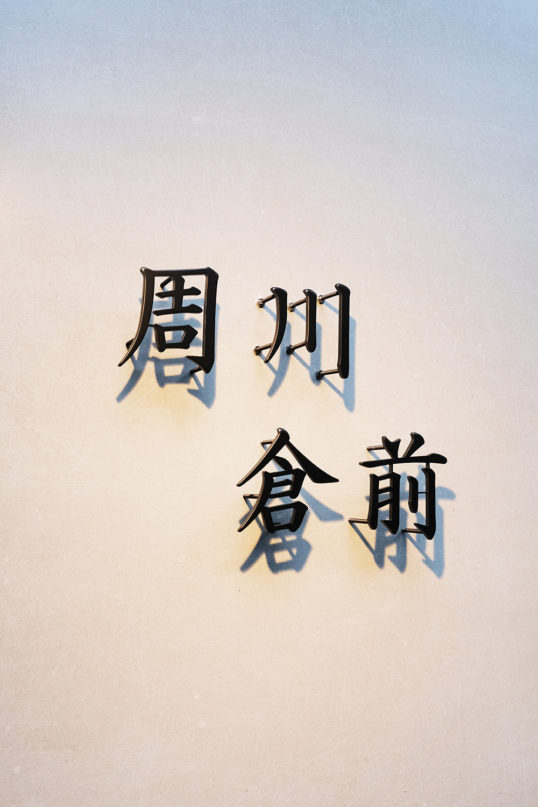 周川
倉前